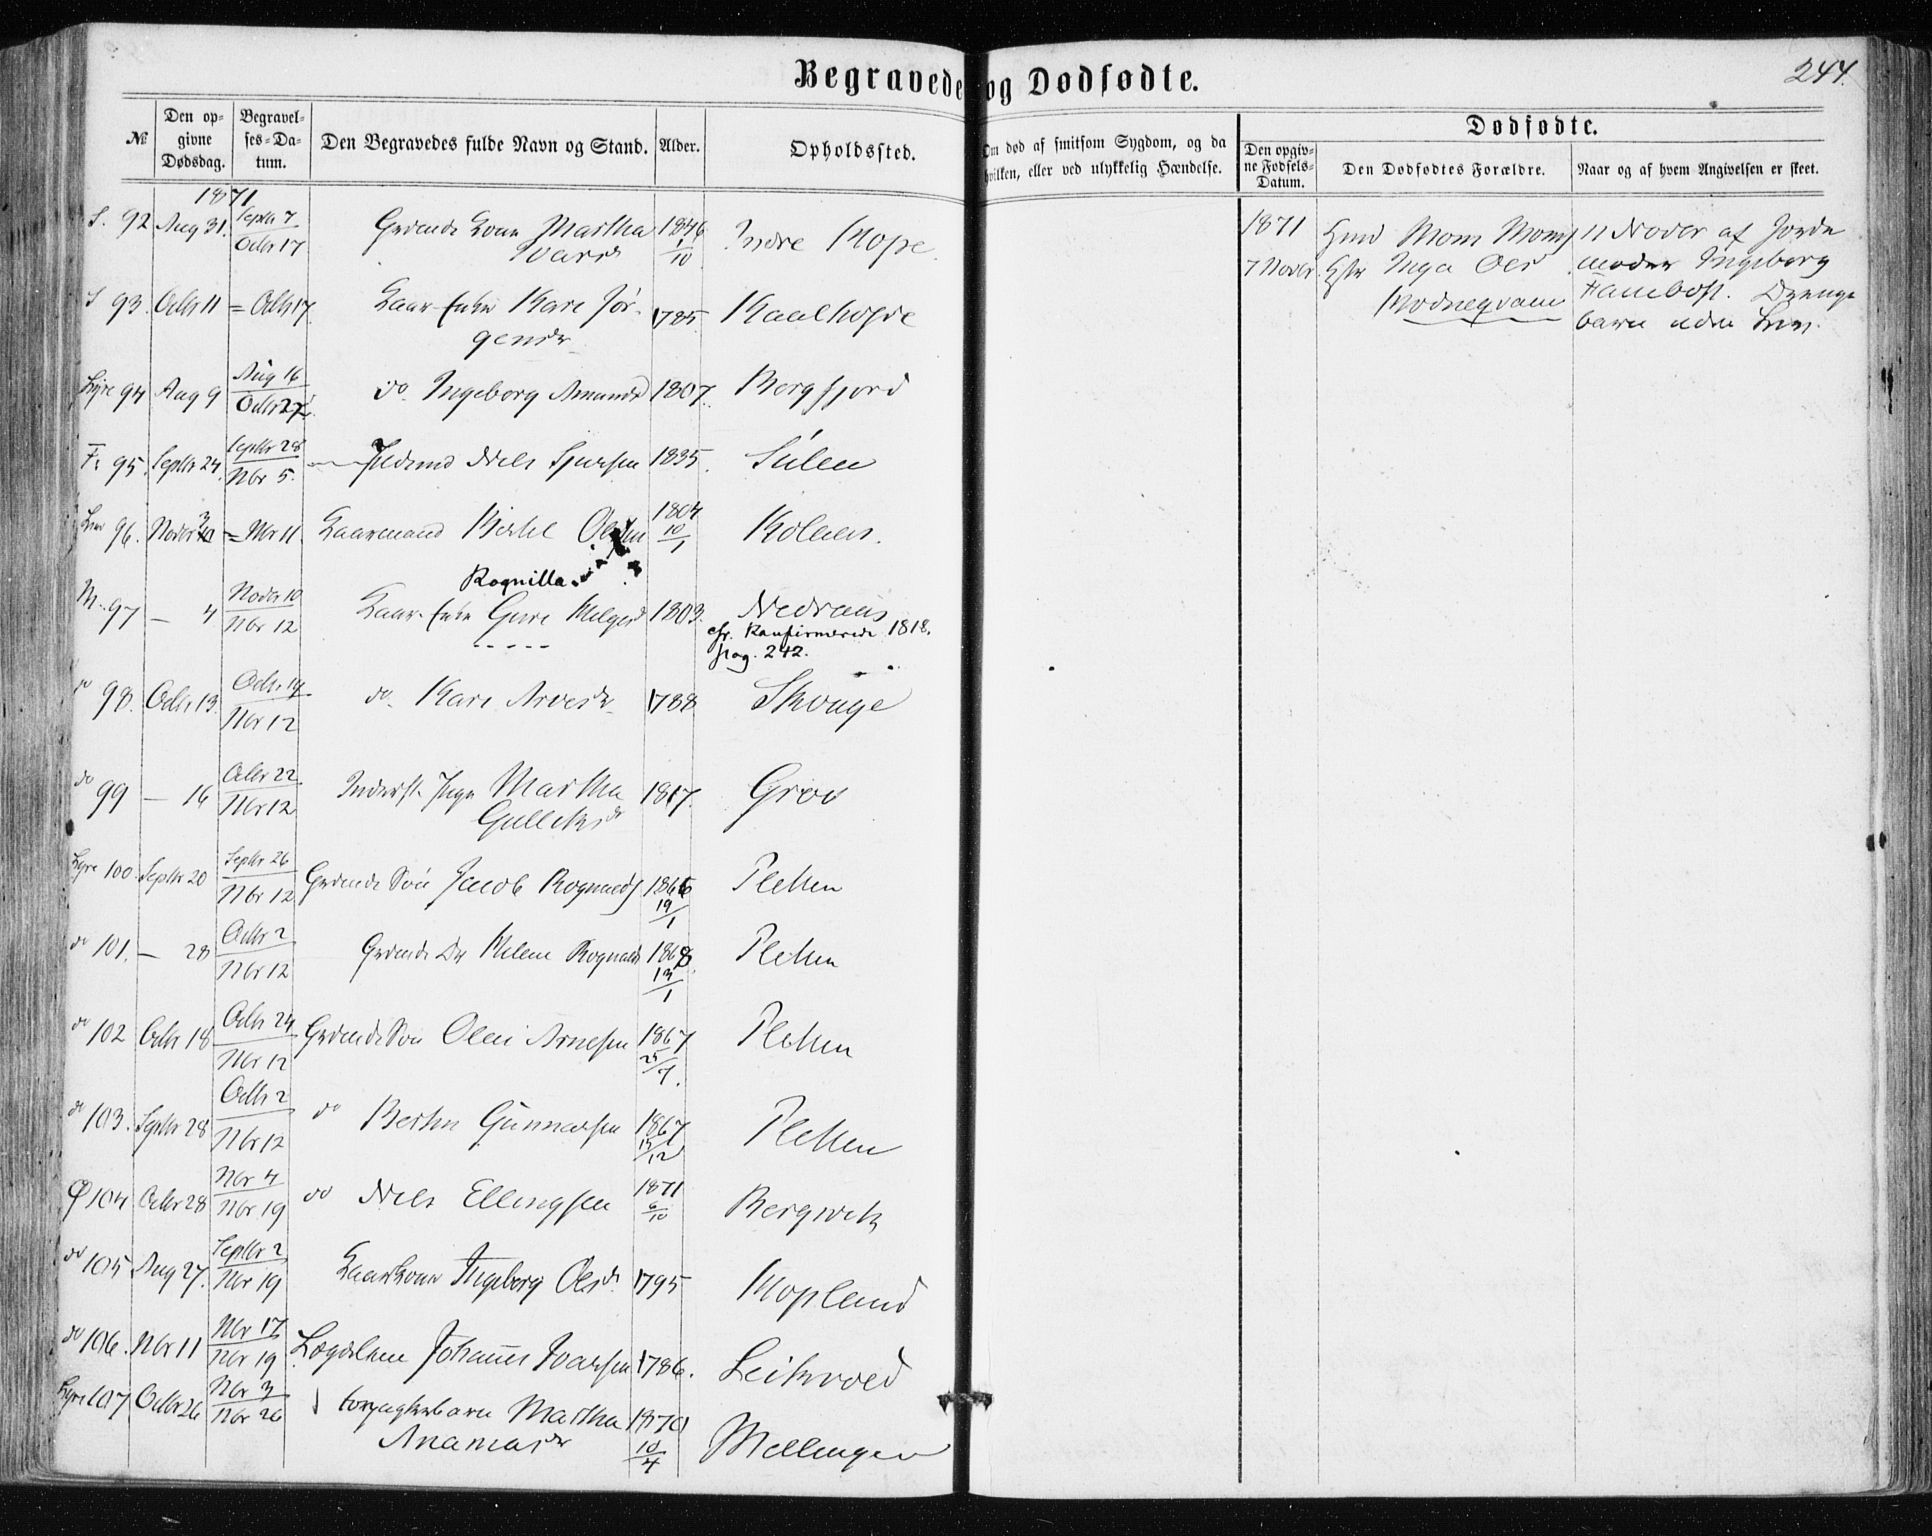 Begravede og Dødfødte.
244.
№
Den opgivne Dødsdag.
Begravelses-Datum.
Den Begravedes fulde Navn og Stand.
Alder.
Opholdssted.
Om død af smitsom Sygdom, og da hvilken, eller ved ulykkelig Hændelse.
Dødfødte.
Den opgivne Fødsels-Datum.
Den Dødfødtes Forældre.
Naar og af hvem Angivelsen er skeet.
1871
S. 92 Aug 31. Septbr 7 / Octbr 17 Grdmds Kone Martha Ivarsdr 1846 1/10 Indre Hope
S 93. Octbr 11 = Octbr 17. Kaar Enke Kari Jørgensdr 1785. Kaalhofde
Lyre 94 Aug 9 Aug 16 / Octbr 22. do. Ingeborg Amunds 1807. Borgfjord
Fr 95. Septbr 24. Septbr 28 / Nbr 5. Niels 1835. Sulen
96. Novbr 3 = Nbr 11. Kaarmand Olsen 1804 10/1
M. 97 — 4 Novbr 10 / Nbr 12 Kaar. Enke Guri Helges 1803. Nedraas
Rognilla
cfr. Konfirmerede 1818. pag. 242.
do 98. Octbr 13. Octbr 19 / Nbr 12 do. Kari Arvesdr 1788 Skouge
do 99 — 16 Octbr 22 / Nbr 12 Inderst Martha Gulleiksdr 1817. Grov
Lyre 100. Septbr 20 Septbr 26 / Nbr 12 Grdmds Søn Jacob Rognalds 1866 19/1 Pletten
do 101. — 28 Octbr 2 / Nbr 12 Grdmds Dr Helene Rognalds 1868. 13/1 Pletten
do 102 Octbr 18 Octbr 24 / Nbr 12 Grdmds Søn Olai Arnesen 1867 25/7. Pletten
do 103. Septbr 28 Octbr 2 / Nbr 12 do Gunnarsen 1867 12 Pletten
Ø 104 Octbr 28 Nbr 4 / Nbr 19 do Niels Ellingsen 1871 6/10 Bergsvik
do 105 Aug 27. Septbr 2 / Nbr 19 Kaarkone Ingeborg Olsdr. 1795 Hopland
do 106. Nbr 11 Nbr 17 / Nbr 19 Lægdslem Johannes Ivarsen 1786. Leikvold
Lyre 107 Octbr 26 Nbr 3 / Nbr 26 Martha Anamasdr 1870 10/4 Mellingen
1871
7 Novbr.
Gmd Mons Mons
Hstr Inga Ols
Kvodneqvam
11 Novbr af Jorde
moder Ingeborg
Hambost. Drenge
barn uden Liv.